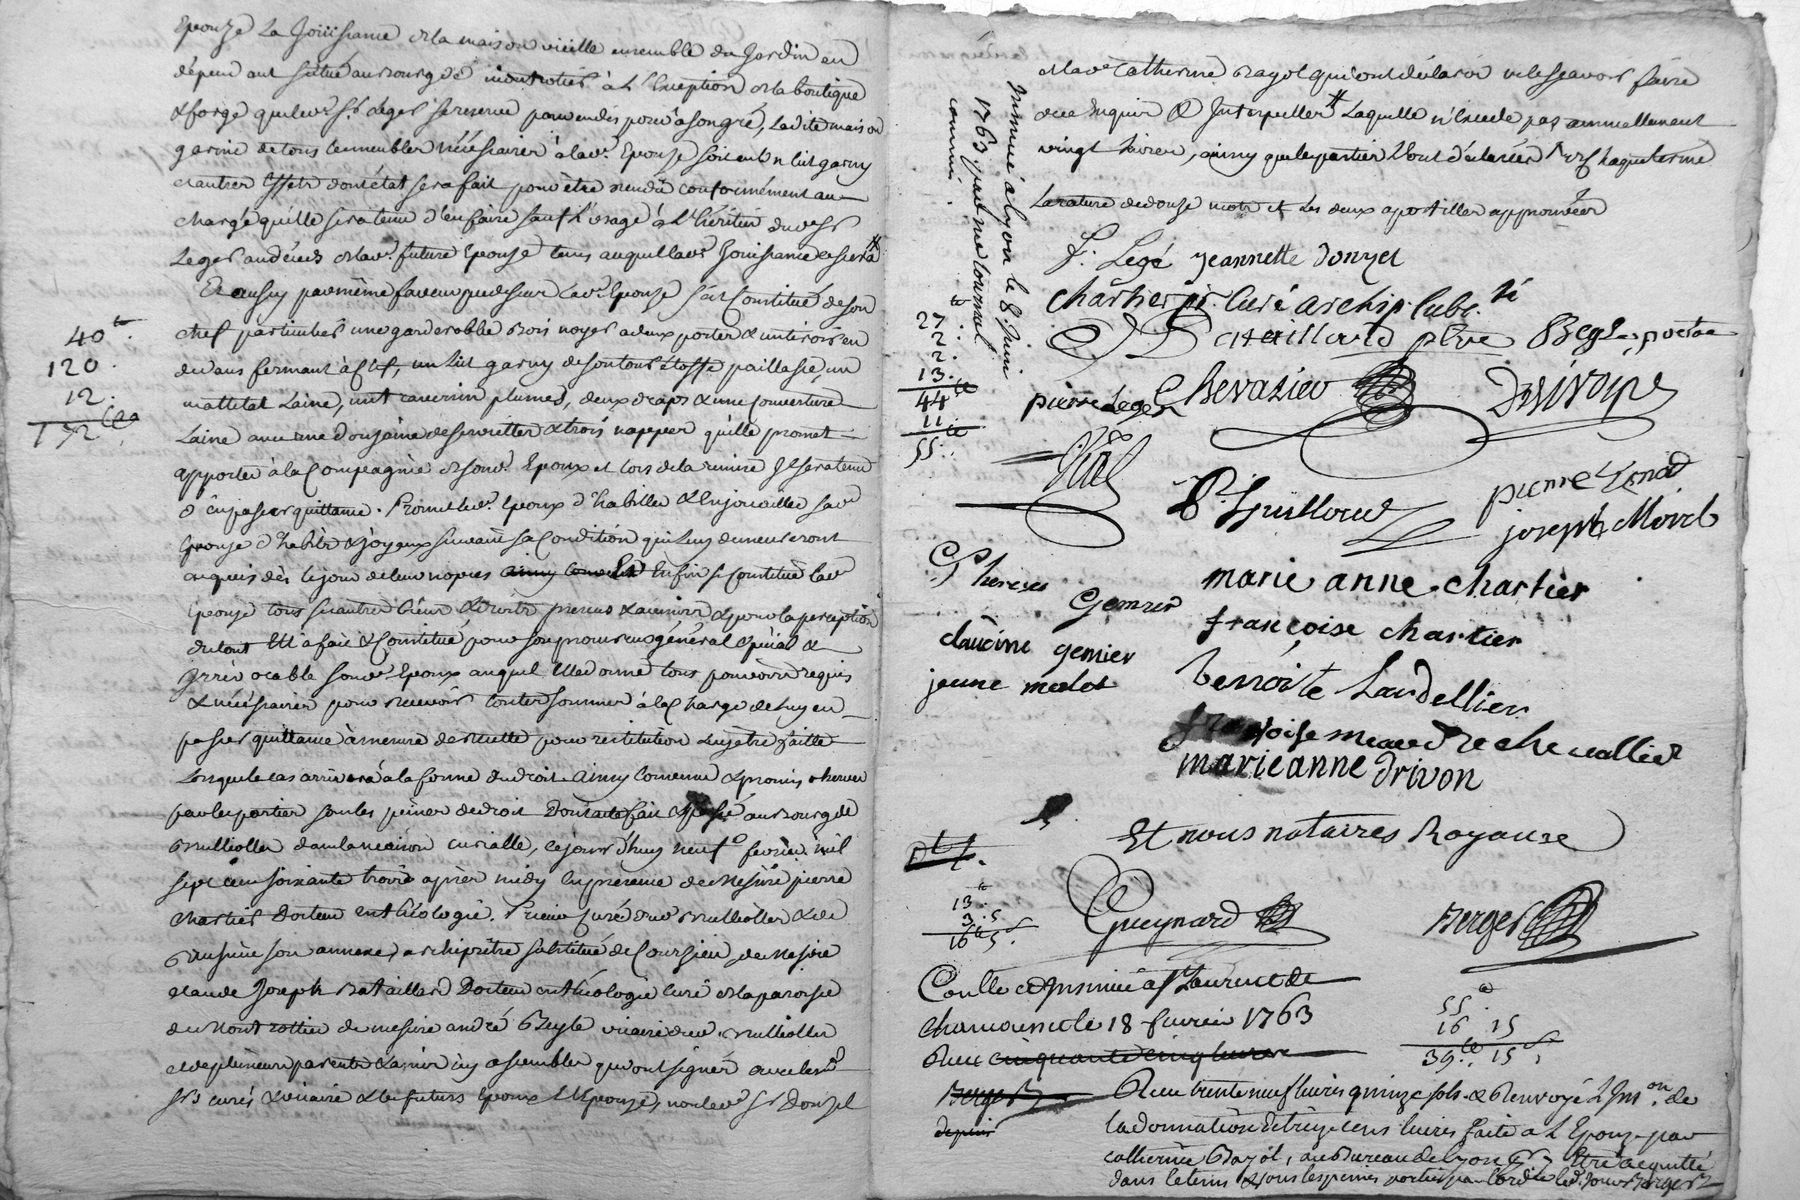 Epouze La Joüissance de la maison vieille ensemble du Jardin en
dépendant scitué au bourg de montrotier à L'Exception de la boutique
& forge que led. Sr. Leger se reserve pour en disposer à son gré, Ladite maison
garnie de tous les meubles nécessaires à lad. Epouze soit un lit garny
& autres Effets dont état sera fait pour être rendu conformément au
charge qu'elle sera tenue d'en faire sauf L'usage à L'héritier dud. Sr
Leger au décès de lad. future Epouze tems auquel lad. Joüissance cessera
Et aussy par même faveur que dessus Lad. Epouze s'est Constitué de son
chef particulier une garderobbe Bois noyer à deux portes & un tiroir en
dedans fermant à clef, un Lit garny de son tour d'étoffe paillasse, un
mattelat Laine, un traversin plumes, deux draps & une couverture
Laine avec une douzaine de serviettes & trois nappes qu'elle promet
apporter à la Compagnie de son d. Epoux et lors de la remise Il sera tenu
d'en passer quittance. Promet led. Epoux d'habiller & Enjoualler sad.
Epouze d'habits & joyaux suivant sa Condition qui Luy demeureront
acquis dès le jour de leur nopces ainsy Enfin se Constitue lad.
Epouze tous ses autres biens & droits presens & avenir & pour la perception
du tout Elle a fait & Constitué pour son procureur général & spécial &
Irrévocable son d. Epoux auquel Elle donne tous pouvoirs requis
& nécéssaires pour recevoir toutes sommes à la Charge de luy en
passer quittance à mesure de recette pour restitution Luy être faitte
Lorsque le cas arrivera à la forme du droit. Ainsy Convenu & promis observer
par les parties sous les peines de droit Dont acte fait & passé au bourg de
Brullioles dans la maison curialle, ce jourd'huy neuf fevrier mil
sept cens soixante trois après midy En presence de Messire pierre
Chartier Docteur en théologie. Prieur Curé dud. Brullioles & de
Brussieu son annexe, archiprêtre substitué de Coursieu, de Messire
Claude Joseph Bataillard Docteur en théologie Curé de la paroisse
de Montrottier de messire andré Begle vicaire dud. Brullioles
et de plusieurs parents & amis icy assemblés qui ont signé avec lesd.
Srs curés & vicaire & les futurs Epoux & Epouze, non led. Sr Donzel
40 #.
120.
12.
172 #
& lad. Catherine Bayol qui ont déclaré ne le sçavoir faire
de ce Enquis & Interpellés Laquelle n'excede pas annuellement
vingt Livres, ainsy que les parties L'ont déclarés
La rature de douze mots et Les deux apostilles approuvées
Insinué a Lyon le 8 Juin
1763 par me Tournel
commis.
27 #.
2.
2.
13.
44 #
11.
55 #.
F: Legé Jeannette donzel
Chartier pr. Curé archip. subs.té
Bataillard ptre Begle, ptre
pierre Leger Chevazieu Drivoire
Vial
P. Guilloud pierre
joseph Morel
Therese Gemier marie anne chartier
françoise chartier
claudine gemier
jeune
benoite Lardellier
marie anne drivon
Et nous notaires Royaux
13 #.
3. 5
16 # 5 s.
Gueynard Berger
Conllé et Insinué à St Laurent de
Chamousset le 18 fevrier 1763
Reçu cinquante cinq livres
Berger
depuis
55 #.
16 15
39 # 15 s.
Reçu trente neuf livres quinze sols & Renvoyé L'Ins.on de
la donnation de treize cens livres faite a L'Epouze par
catherine Bayol, au Bureau de Lyon Etre acquitté
dans le tems & sous les peines portées par Berger